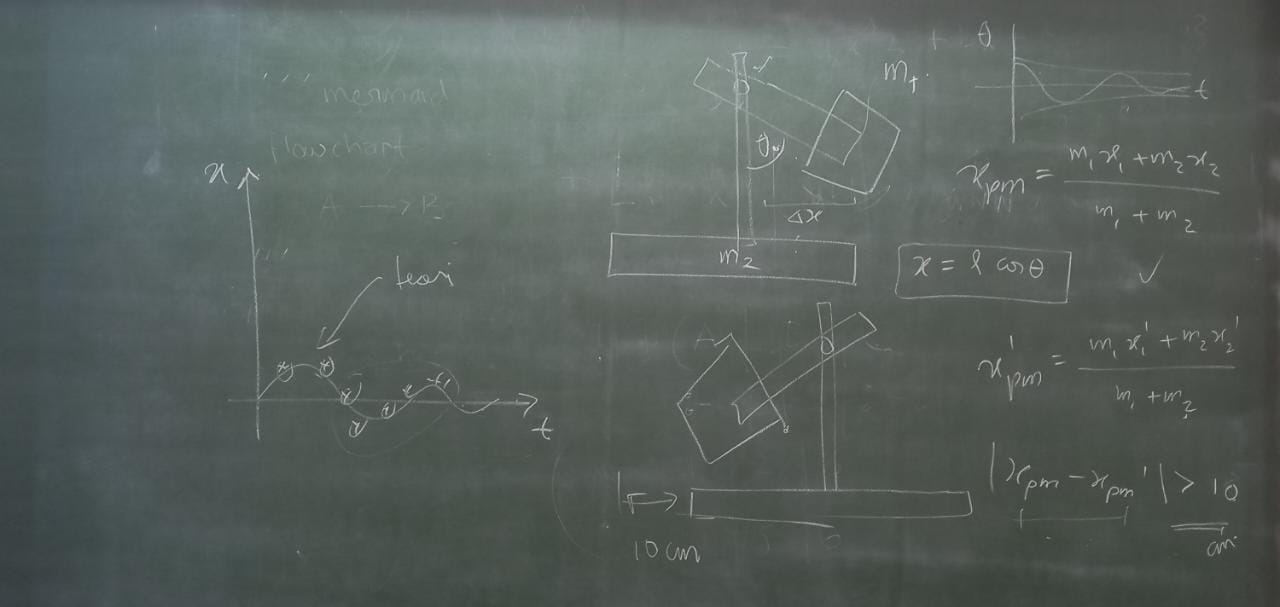 ' ' '
mermaid
flowchart
A → B
' ' '
x
teori
t
m₁
θ
Δx
m₂
θ
t
x_pm = (m₁x₁ + m₂x₂) / (m₁ + m₂)
x = l cos θ
✓
x'_pm = (m₁x₁' + m₂x₂') / (m₁ + m₂)
|x_pm − x_pm'| > 10
cm
10 cm